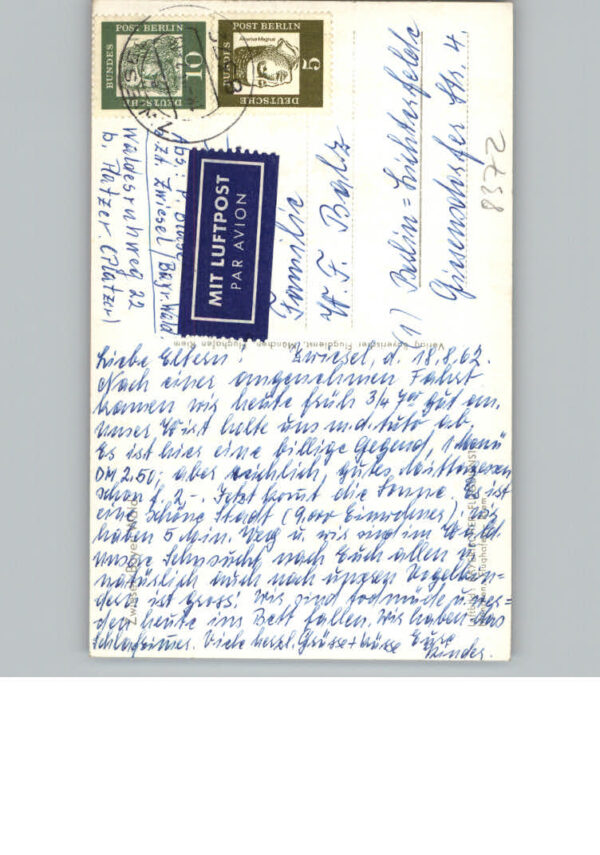 DEUTSCHE
BUNDES
POST BERLIN
10
DEUTSCHE
BUNDES
POST BERLIN
5
Albertus Magnus
MIT LUFTPOST
PAR AVION
Abs.:
Zt. Zwiesel/Bayr. Wald
Waldesruhweg 22
b. Platzer (Platzer)
Familie
W. F. Balz
(1) Berlin=Lichterfelde
Giesensdorfer Str. 4.
8372
Verlag Bayerischer Flugdienst, München Flughafen Riem
Liebe Eltern! Zwiesel, d. 18.8.62.
Nach einer angenehmen Fahrt
kamen wir heute früh 3/4 7 Uhr gut an.
Unser Wirt holte uns m. d. Auto ab.
Es ist hier eine billige Gegend, 1 Menü
DM 2.50, aber reichlich, gutes Mittagessen
schon f. 2,-. Jetzt kommt die Sonne. Es ist
eine schöne Stadt (9.000 Einwohner). Wir
haben 5 Min. Weg u. wir sind im Wald.
Unsere Sehnsucht nach Euch allen u.
natürlich auch nach unseren Vogelkin-
dern ist gross! Wir sind todmüde u. wer-
den heute ins Bett fallen. Wir haben das
Schlafzimmer. Viele herzl. Grüsse + Küsse Eure
Kinder.